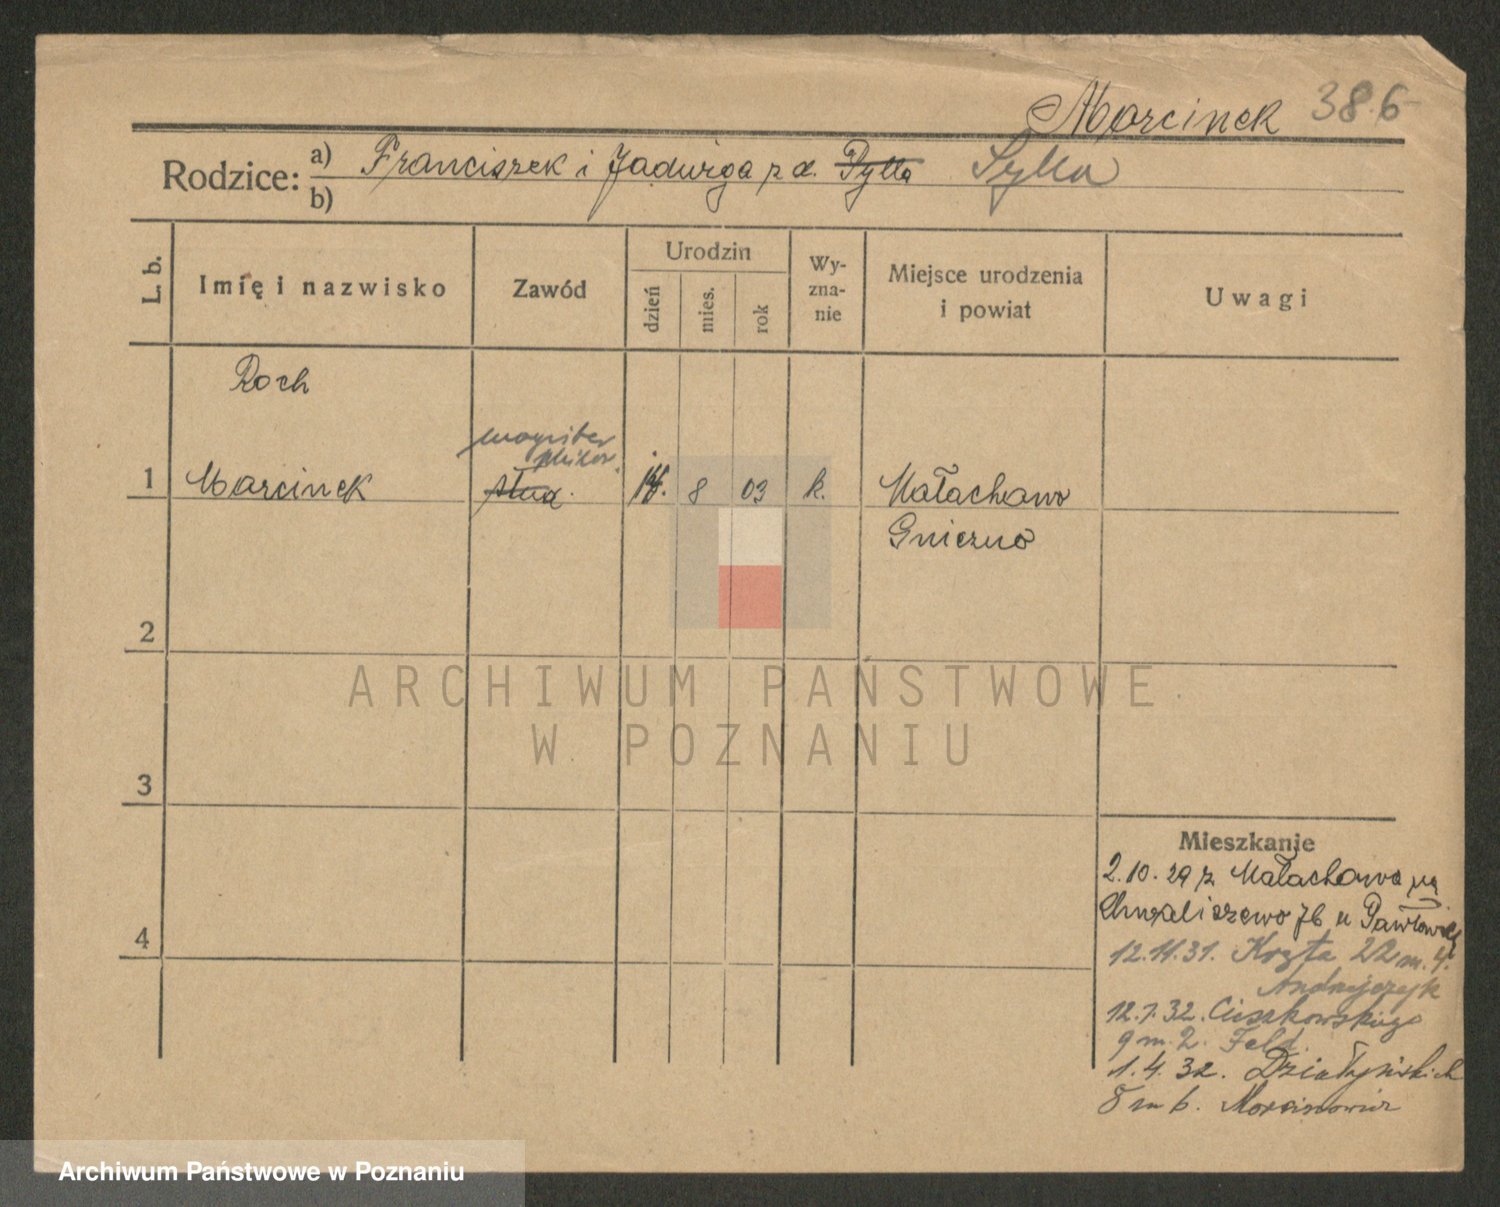 Marcinek 38.6
Rodzice: a) Franciszek i Jadwiga z d. Pylla Sylla
b)
L. b.
Imię i nazwisko
Zawód
Urodzin
dzień
mies.
rok
Wy-
zna-
nie
Miejsce urodzenia
i powiat
Uwagi
Roch
magister
1 Marcinek stud. 8 03 k. Małachowo
Gniezno
2
3
4
Mieszkanie
2.10.29 z Małachowa na
Chwaliszewo 76 u
12.11.31. 22 m. 4.
Andrzejczyk
12.1.32. Cieszkowskiego
9 m. 2. Feld.
1.4.32. Działyńskich
8 m 6.
ARCHIWUM PAŃSTWOWE
W POZNANIU
Archiwum Państwowe w Poznaniu